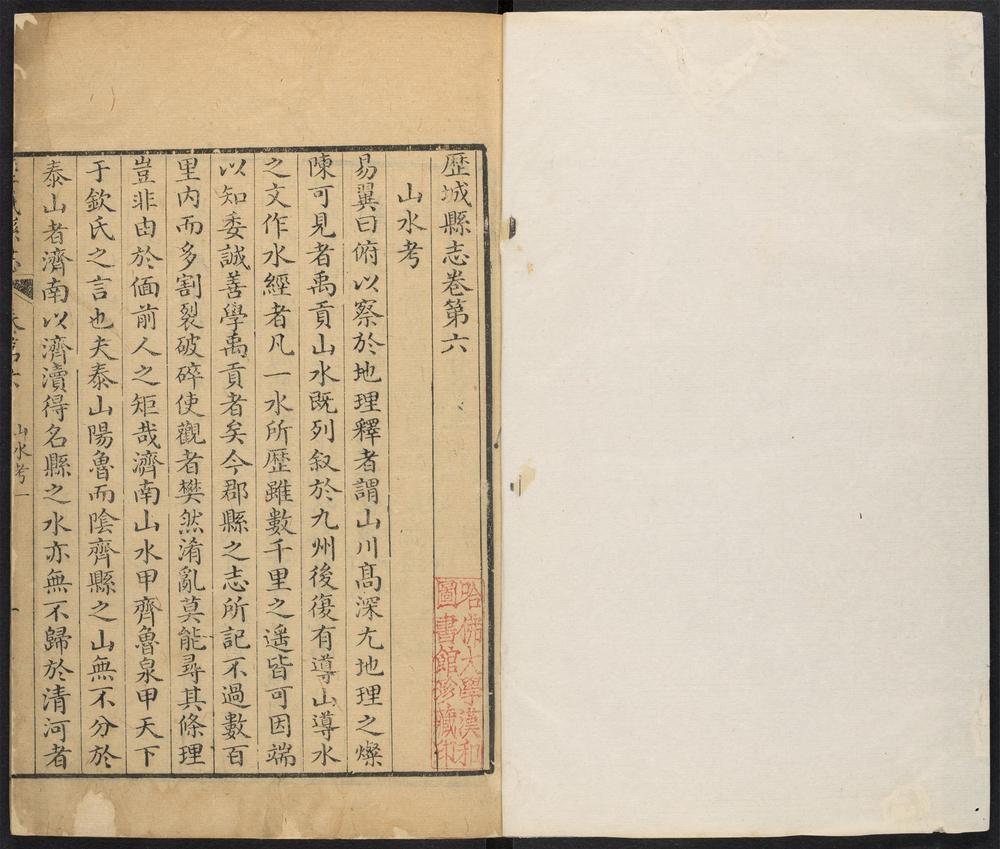 歷城縣志卷第六
山水考
易翼曰俯以察於地理釋者謂山川髙深尤地理之燦
陳可見者禹貢山水既列叙於九州後復有導山導水
之文作水經者凡一水所歷雖數千里之遥皆可因端
以知委誠善學禹貢者矣今郡縣之志所記不過數百
里内而多割裂破碎使觀者樊然淆亂莫能尋其條理
豈非由於偭前人之矩哉濟南山水甲齊魯泉甲天下
于欽氏之言也夫泰山陽魯而陰齊縣之山無不分於
泰山者濟南以濟瀆得名縣之水亦無不歸於清河者
山水考一
哈佛大學漢和
圖書館珍藏印